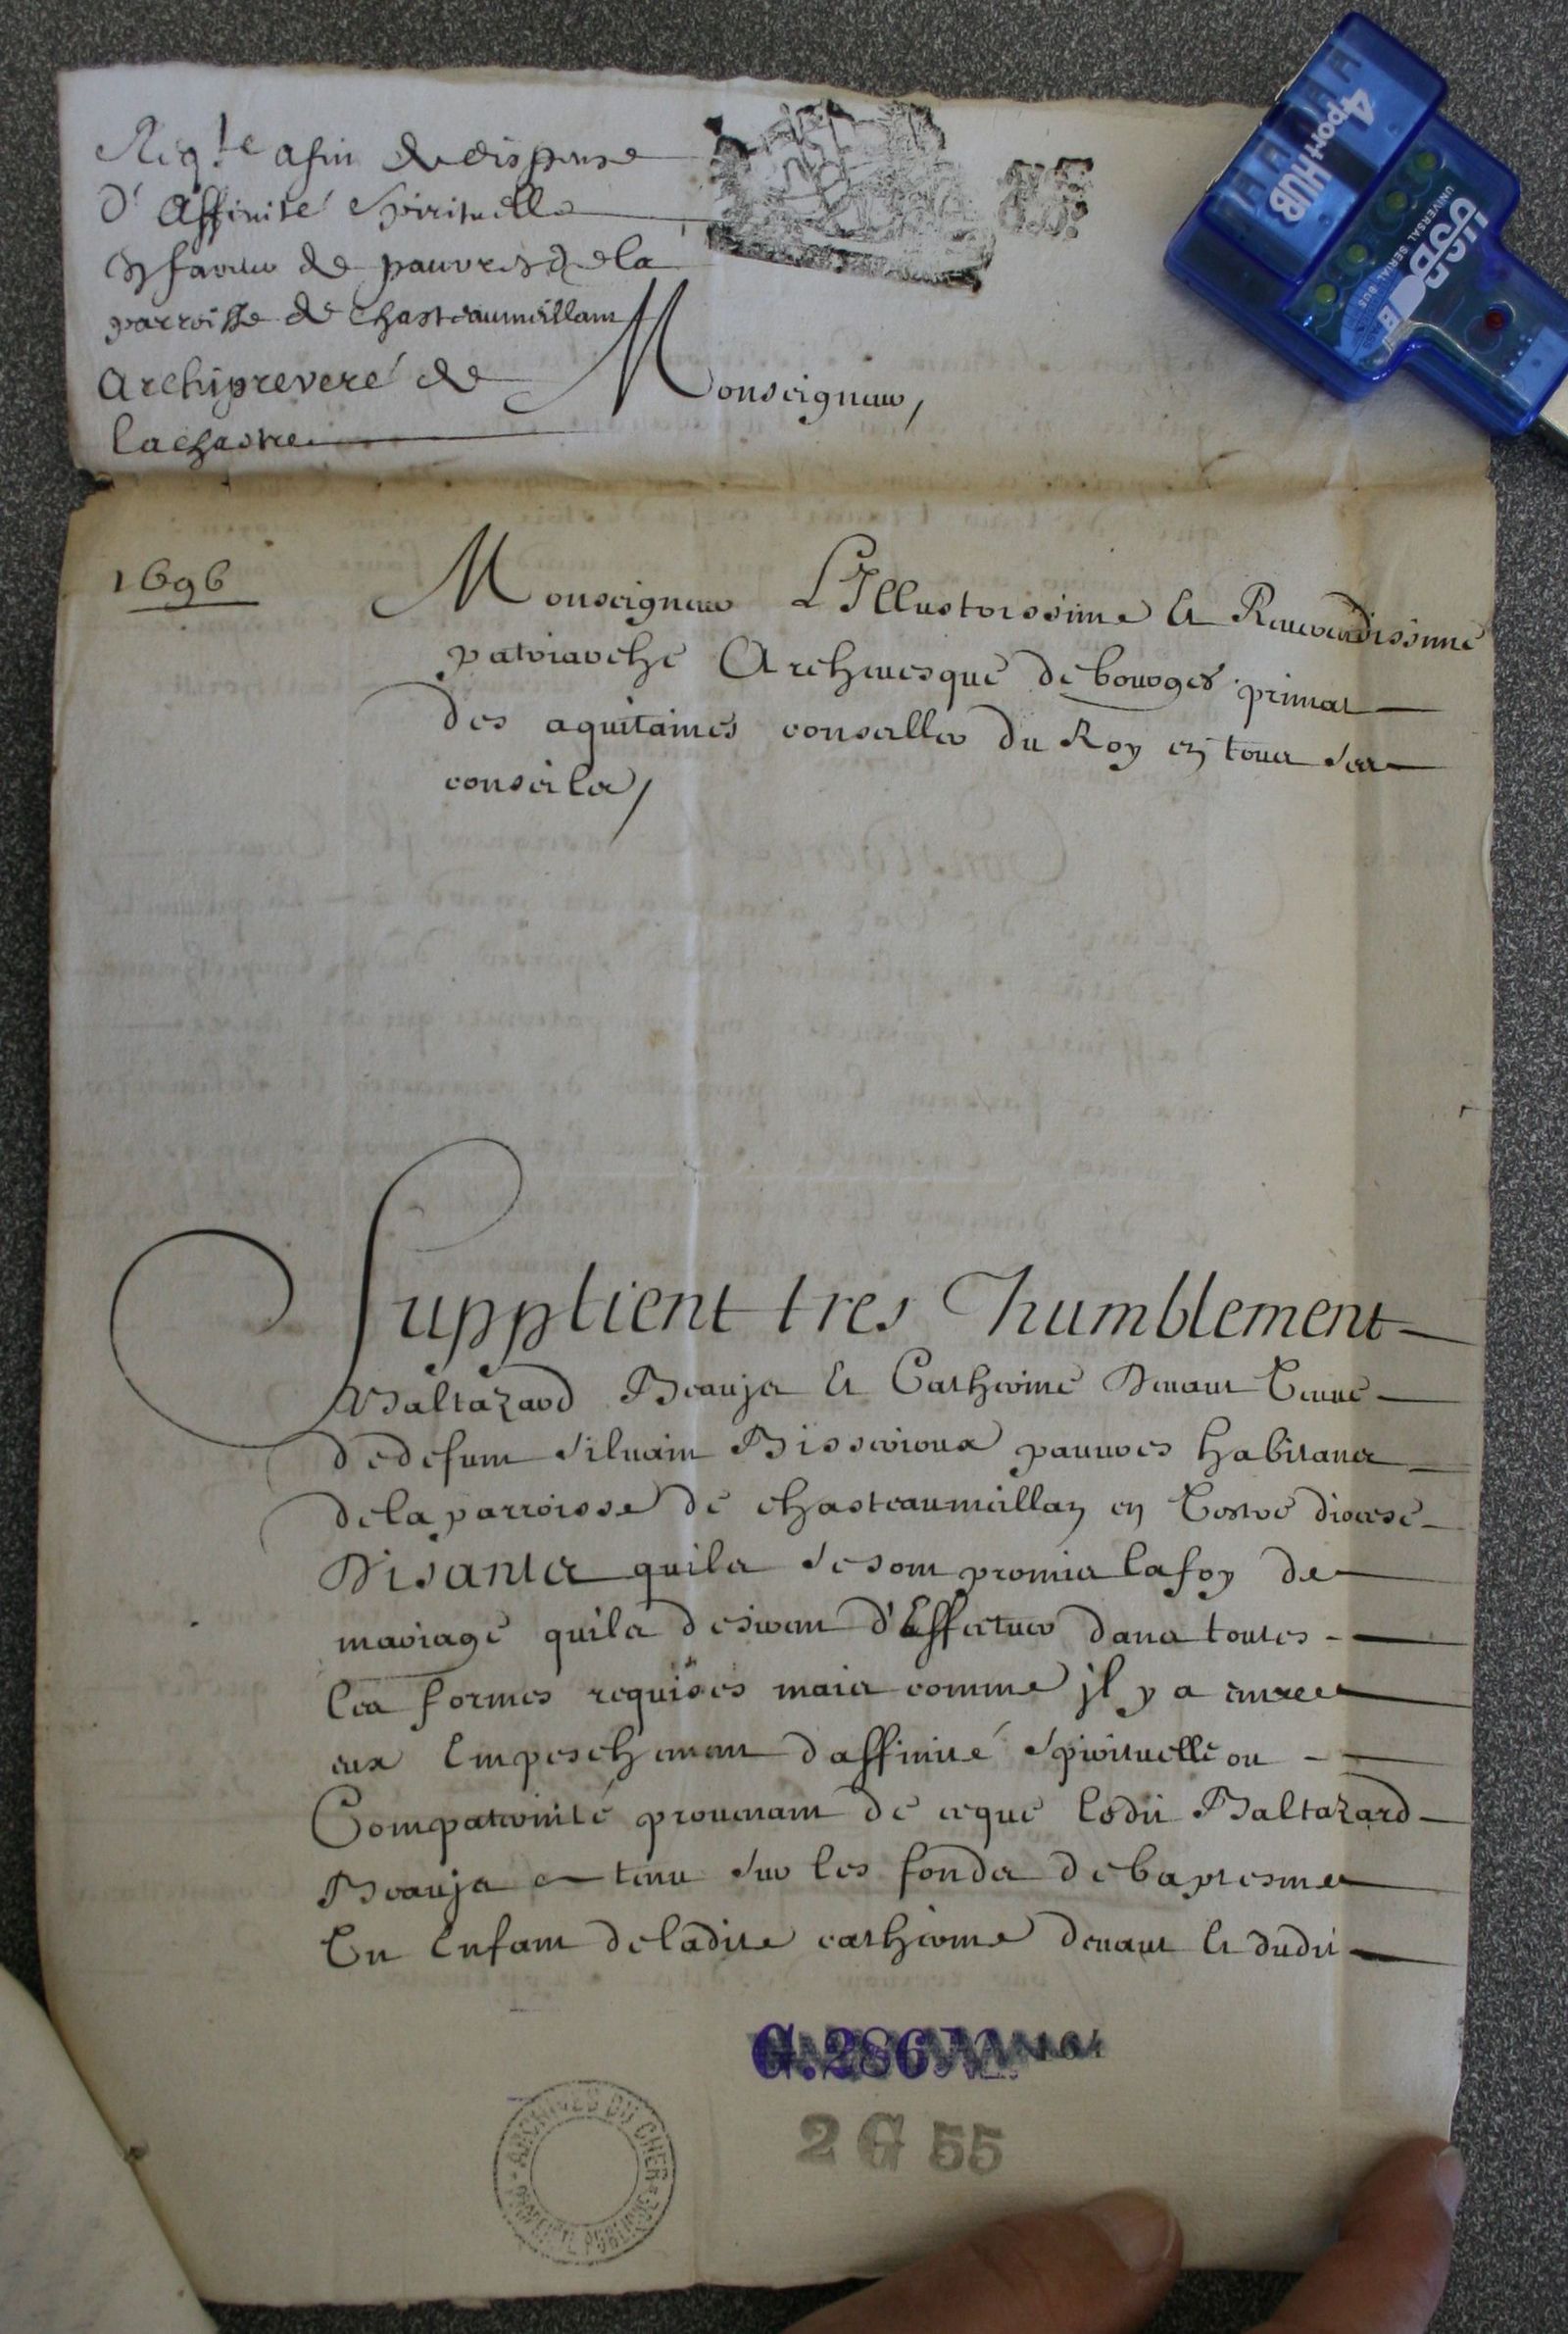 Reqte afin de dispense
d'Affinité Spirituelle
En faveur de pauvres de la
parroisse de Chasteaumeillant
Archipreveré de
lachastre
Monseigneur,
1696
Monseigneur L'Illustrissime Et Reuerendissime
patriarche Archeuesque de bourges primat
des aquitaines conseiller du Roy en tous ses
conseils,
Supplient tres humblement
Baltazard Beauja Et Catherine Deuaut Veuue
de defunt Siluain Bisserioux pauures habitans
de la parroisse de chasteaumeillan en Vostre diocese
Disants quils se sont promis la foy de
mariage quils desirent d'Effectuer dans toutes
les formes requises mais comme jl y a entre
eux Empeschement daffinité spirituelle ou
Compaternité prouenant de ceque ledit Baltazard
Beauja a tenu sur les fonds de baptesme
Un Enfant de ladite catherine deuaut Et dudit
G.286
2 G 55
ARCHIVES DU CHER
PROPRIÉTÉ PUBLIQUE
4port HUB
USB
UNIVERSAL SERIAL BUS